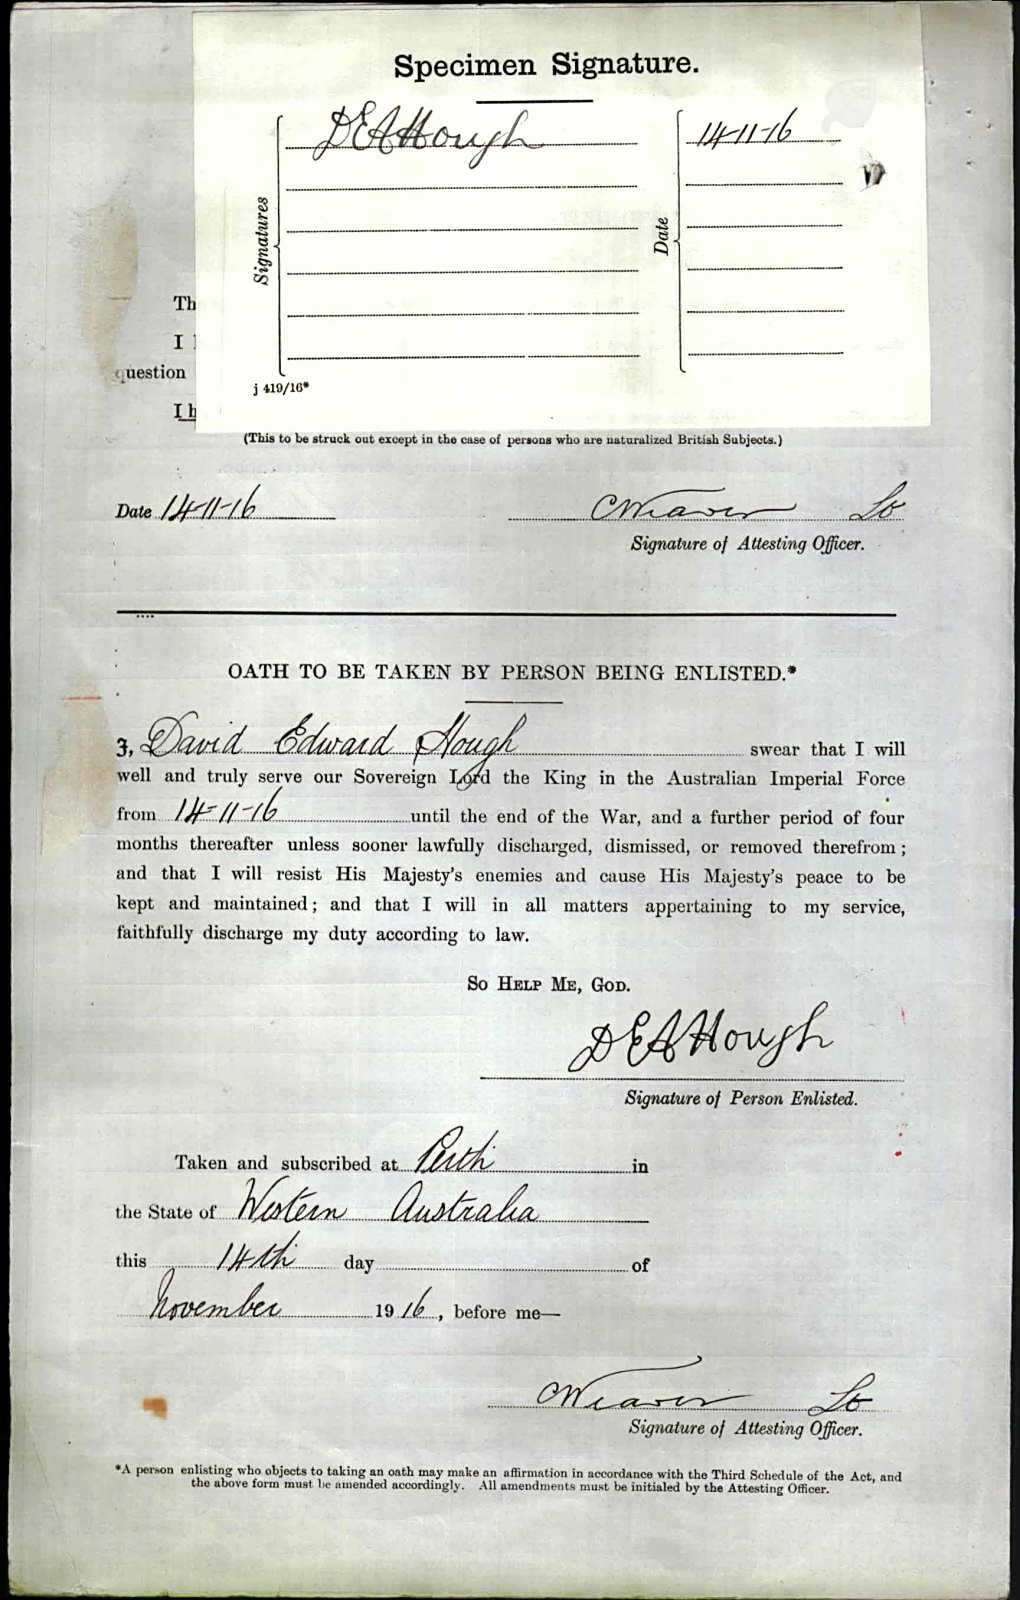 Specimen Signature.
Signatures
DEAHough
Date
14-11-16
j 419/16*
Th
I
question
I h
(This to be struck out except in the case of persons who are naturalized British Subjects.)
Date 14-11-16 CWeaver Lt
Signature of Attesting Officer.
OATH TO BE TAKEN BY PERSON BEING ENLISTED.*
I, David Edward Hough swear that I will
well and truly serve our Sovereign Lord the King in the Australian Imperial Force
from 14-11-16 until the end of the War, and a further period of four
months thereafter unless sooner lawfully discharged, dismissed, or removed therefrom;
and that I will resist His Majesty's enemies and cause His Majesty's peace to be
kept and maintained; and that I will in all matters appertaining to my service,
faithfully discharge my duty according to law.
So Help Me, God.
DEAHough
Signature of Person Enlisted.
Taken and subscribed at Perth in
the State of Western Australia
this 14th day of
November 1916, before me—
CWeaver Lt
Signature of Attesting Officer.
*A person enlisting who objects to taking an oath may make an affirmation in accordance with the Third Schedule of the Act, and
the above form must be amended accordingly. All amendments must be initialed by the Attesting Officer.